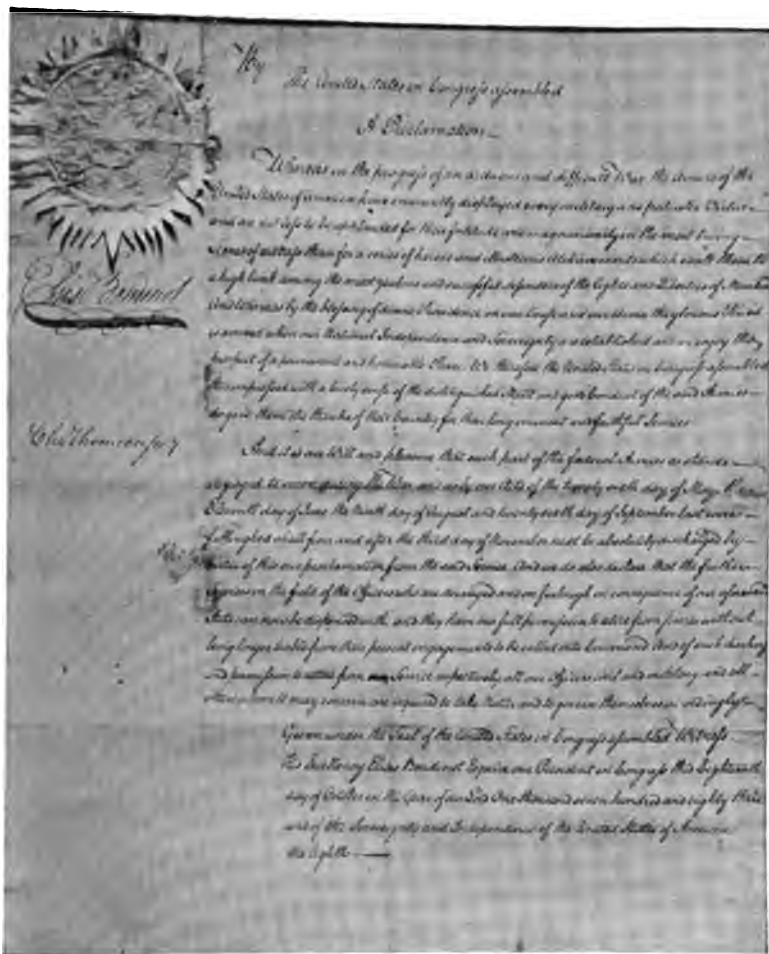 By
The United States in Congress assembled
A Proclamation
Whereas in the progress of an arduous and difficult War the Armies of the
United States of America have eminently displayed every military and patriotic Virtue
and are not less to be applauded for their fortitude and magnanimity in the most trying
scenes of distress than for a series of heroic and illustrious Atchievements which exalt them to
a high rank among the most zealous and successful defenders of the Rights and Liberties of Mankind
And Whereas by the blessing of divine Providence on our Cause and our Arms the glorious Period
is arrived when our National Independence and Sovereignty are established and we enjoy the
prospect of a permanent and honorable Peace We therefore the United States in Congress assembled
impressed with a lively sense of the distinguished Merit and good Conduct of the said Armies
do give them the thanks of their Country for their long eminent and faithful Services
And it is our Will and pleasure that such part of the federal Armies as stands
engaged to serve during the War and as by our Acts of the twenty sixth day of May the
Eleventh day of June the Ninth day of August and twenty sixth day of September last were
furloughed shall from and after the third day of November next be absolutely discharged by
virtue of this our proclamation from the said Service And we do also declare that the further
services in the field of the Officers who are deranged and on furlough in consequence of our aforesaid
Acts can now be dispensed with and they have our full permission to retire from service without
being longer liable from their present engagements to be called into Command And of such discharge
and permission to retire from Service respectively all our Officers civil and military and all
others whom it may concern are required to take Notice and to govern themselves accordingly
Given under the Seal of the United States in Congress assembled Witness
His Excellency Elias Boudinot Esquire our President in Congress this Eighteenth
day of October in the Year of our Lord One thousand seven hundred and eighty three
and of the Sovereignty and Independence of the United States of America
the eighth
Elias Boudinot
Chas Thomson secy